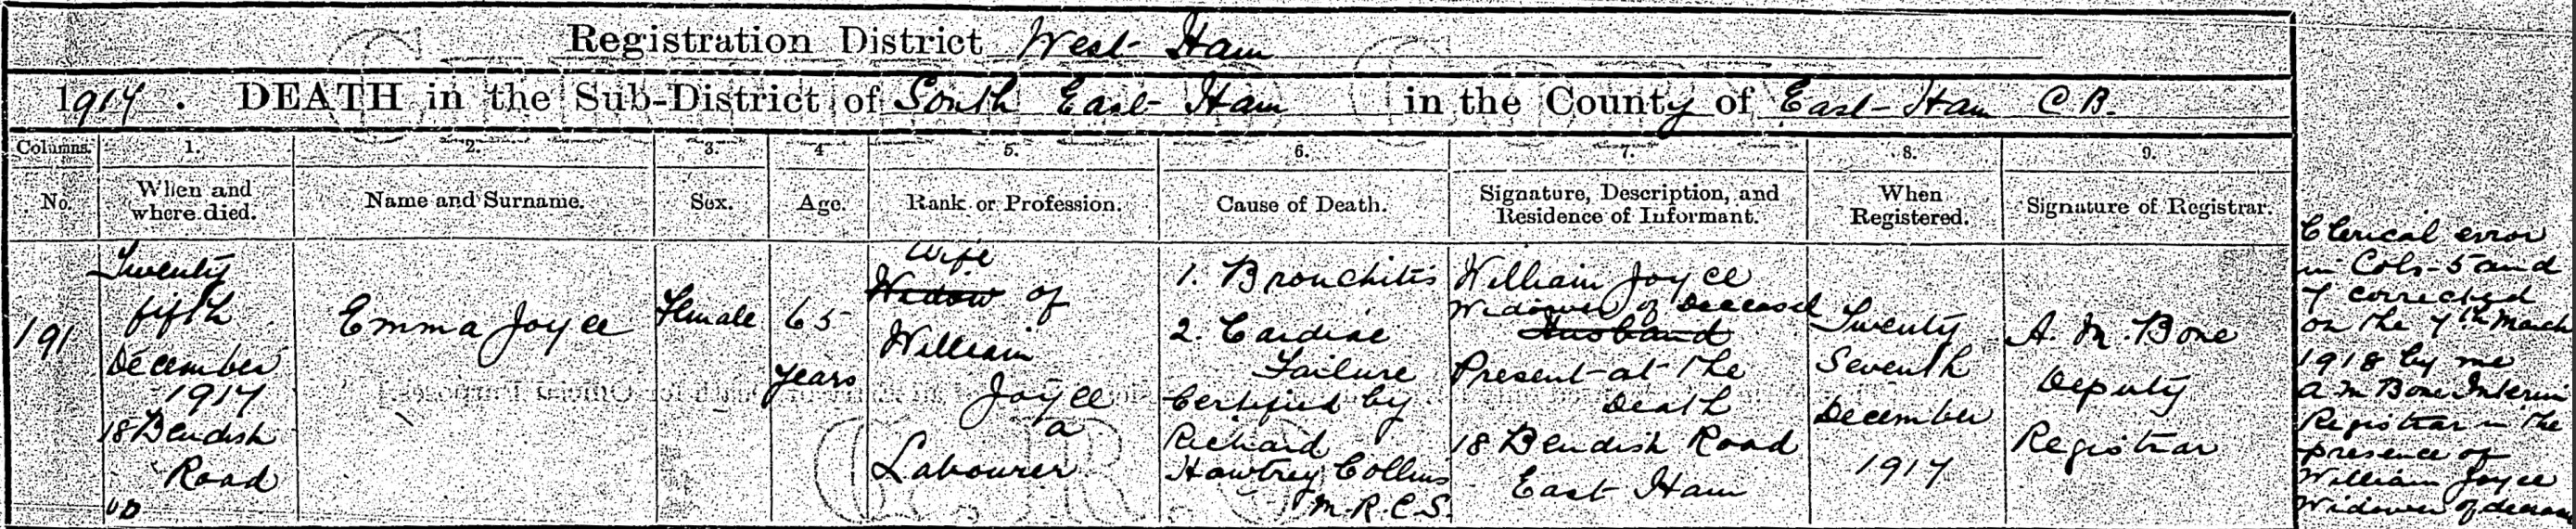 Registration District West Ham
1917. DEATH in the Sub-District of South East Ham in the County of East Ham C.B.
Columns. 1. 2. 3. 4 5. 6. 7. 8. 9.
No. When and where died. Name and Surname. Sex. Age. Rank or Profession. Cause of Death. Signature, Description, and Residence of Informant. When Registered. Signature of Registrar.
191
Twenty
fifth
December
1917
18 Bendish
Road
UD
Emma Joyce
Female
65
years
Wife
Widow of
William
Joyce
a
Labourer
1. Bronchitis
2. Cardiac
Failure
Certified by
Richard
Hawtrey Collins
M.R.C.S.
William Joyce
Widower of deceased
Husband
Present at the
Death
18 Bendish Road
East Ham
Twenty
Seventh
December
1917
A. M. Bone
Deputy
Registrar
Clerical error
in Cols-5 and
7 corrected
on the 7th March
1918 by me
A M Bone Interim
Registrar in the
presence of
William Joyce
Widower of deceased